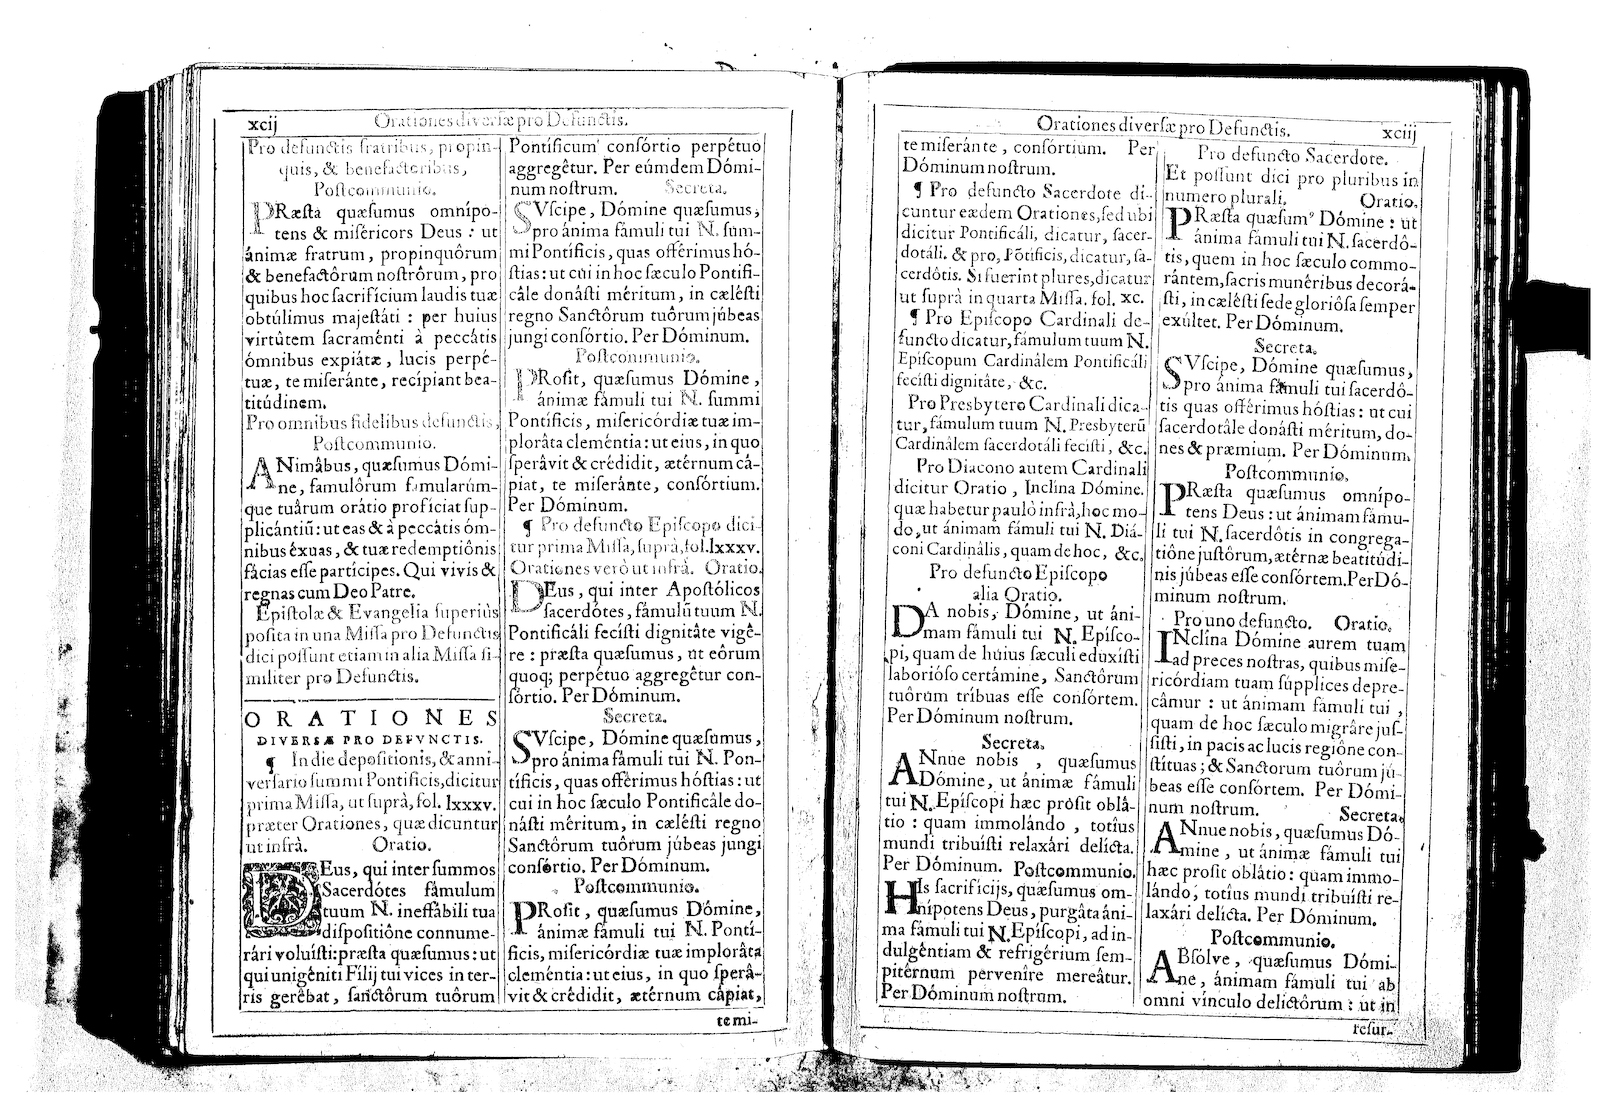 xcij
Orationes diversæ pro Defunctis.
Pro defunctis fratribus, propin-
quis, & benefactoribus,
Postcommunio.
PRæsta quæsumus omnípo-
tens & miséricors Deus : ut
ánimæ fratrum, propinquôrum
& benefactôrum nostrôrum, pro
quibus hoc sacrifícium laudis tuæ
obtúlimus majestáti : per huius
virtûtem sacraménti à peccátis
ómnibus expiátæ, lucis perpé-
tuæ, te miseránte, recípiant bea-
titúdinem.
Pro omnibus fidelibus defunctis,
Postcommunio.
ANimâbus, quæsumus Dómi-
ne, famulôrum famularúm-
que tuârum orátio profíciat sup-
plicántiũ: ut eas & à peccátis óm-
nibus éxuas, & tuæ redemptiônis
fácias esse partícipes. Qui vivis &
regnas cum Deo Patre.
Epistolæ & Evangelia superiùs
posita in una Missa pro Defunctis
dici possunt etiam in alia Missa si-
militer pro Defunctis.
ORATIONES
DIVERSÆ PRO DEFVNCTIS.
¶ In die depositionis, & anni-
versario summi Pontificis, dicitur
prima Missa, ut suprà, fol. lxxxv.
præter Orationes, quæ dicuntur
ut infrà. Oratio.
DEus, qui inter summos
Sacerdótes fâmulum
tuum N. ineffábili tua
dispositiône connume-
rári voluísti: præsta quæsumus: ut
qui unigéniti Fílij tui vices in ter-
ris gerêbat, sanctôrum tuôrum
Pontíficum consórtio perpétuo
aggregêtur. Per eúmdem Dómi-
num nostrum. Secreta.
SVscipe, Dómine quæsumus,
pro ánima fámuli tui N. sum-
mi Pontíficis, quas offérimus hó-
stias: ut cui in hoc sæculo Pontifi-
câle donásti méritum, in cælésti
regno Sanctôrum tuôrum júbeas
jungi consórtio. Per Dóminum.
Postcommunio.
PRosit, quæsumus Dómine,
ánimæ fámuli tui N. summi
Pontíficis, misericórdiæ tuæ im-
plorâta cleméntia: ut eius, in quo
sperâvit & crédidit, ætérnum cá-
piat, te miseránte, consórtium.
Per Dóminum.
¶ Pro defuncto Episcopo dici-
tur prima Missa, suprà, fol. lxxxv.
Orationes verò ut infrà. Oratio.
DEus, qui inter Apostólicos
sacerdótes, fámulũ tuum N.
Pontificáli fecísti dignitâte vigê-
re : præsta quæsumus, ut eôrum
quoq; perpétuo aggregêtur con-
sórtio. Per Dóminum.
Secreta.
SVscipe, Dómine quæsumus,
pro ánima fámuli tui N. Pon-
tíficis, quas offérimus hóstias: ut
cui in hoc sæculo Pontificâle do-
násti méritum, in cælésti regno
Sanctôrum tuôrum júbeas jungi
consórtio. Per Dóminum.
Postcommunio.
PRosit, quæsumus Dómine,
ánimæ fámuli tui N. Pontí-
ficis, misericórdiæ tuæ implorâta
cleméntia: ut eius, in quo sperâ-
vit & crédidit, ætérnum cápiat,
te mi-
Orationes diversæ pro Defunctis.
xciij
te miseránte, consórtium. Per
Dóminum nostrum.
¶ Pro defuncto Sacerdote di-
cuntur eædem Orationes, sed ubi
dicitur Pontificáli, dicatur, sacer-
dotáli. & pro, Põtificis, dicatur, sa-
cerdótis. Si fuerint plures, dicatur
ut suprà in quarta Missa. fol. xc.
¶ Pro Episcopo Cardinali de-
functo dicatur, fámulum tuum N.
Epíscopum Cardinálem Pontificáli
fecísti dignitâte, &c.
Pro Presbytero Cardinali dica-
tur, fámulum tuum N. Presbyterũ
Cardinâlem sacerdotáli fecísti, &c.
Pro Diacono autem Cardinali
dicitur Oratio, Inclína Dómine.
quæ habetur paulò infrà, hoc mo-
do, ut ánimam fámuli tui N. Diá-
coni Cardinâlis, quam de hoc, &c.
Pro defuncto Episcopo
alia Oratio.
DA nobis, Dómine, ut áni-
mam fámuli tui N. Epísco-
pi, quam de húius sæculi eduxísti
laborióso certámine, Sanctôrum
tuôrum tríbuas esse consórtem.
Per Dóminum nostrum.
Secreta.
ANnue nobis , quæsumus
Dómine, ut ánimæ fámuli
tui N. Epíscopi hæc prósit oblâ-
tio : quam immolándo , totíus
mundi tribuísti relaxári delícta.
Per Dóminum. Postcommunio.
HIs sacrifícijs, quæsumus om-
nípotens Deus, purgâta áni-
ma fámuli tui N. Epíscopi, ad in-
dulgéntiam & refrigérium sem-
pitérnum perveníre mereâtur.
Per Dóminum nostrum.
Pro defuncto Sacerdote.
Et possunt dici pro pluribus in
numero plurali. Oratio.
PRæsta quæsum' Dómine : ut
ánima fámuli tui N. sacerdô-
tis, quem in hoc sæculo commo-
rántem, sacris munéribus decorá-
sti, in cælésti sede gloriôsa semper
exúltet. Per Dóminum.
Secreta.
SVscipe, Dómine quæsumus,
pro ánima fámuli tui sacerdô-
tis quas offérimus hóstias: ut cui
sacerdotále donásti méritum, do-
nes & præmium. Per Dóminum.
Postcommunio,
PRæsta quæsumus omnípo-
tens Deus: ut ánimam fámu-
li tui N. sacerdótis in congrega-
tiône justôrum, ætérnæ beatitúdi-
nis júbeas esse consórtem. Per Dó-
minum nostrum.
Pro uno defuncto. Oratio.
INclína Dómine aurem tuam
ad preces nostras, quibus mise-
ricórdiam tuam súpplices depre-
câmur : ut ánimam fámuli tui ,
quam de hoc sæculo migrâre jus-
sísti, in pacis ac lucis regiône con-
stítuas ; & Sanctorum tuôrum jú-
beas esse consórtem. Per Dómi-
num nostrum. Secreta.
ANnue nobis, quæsumus Dó-
mine , ut ánimæ fámuli tui
hæc prosit oblâtio: quam immo-
lándo, totíus mundi tribuísti re-
laxári delícta. Per Dóminum.
Postcommunio.
ABsólve, quæsumus Dómi-
ne, ánimam fámuli tui ab
omni vínculo delictôrum : ut in
resur-